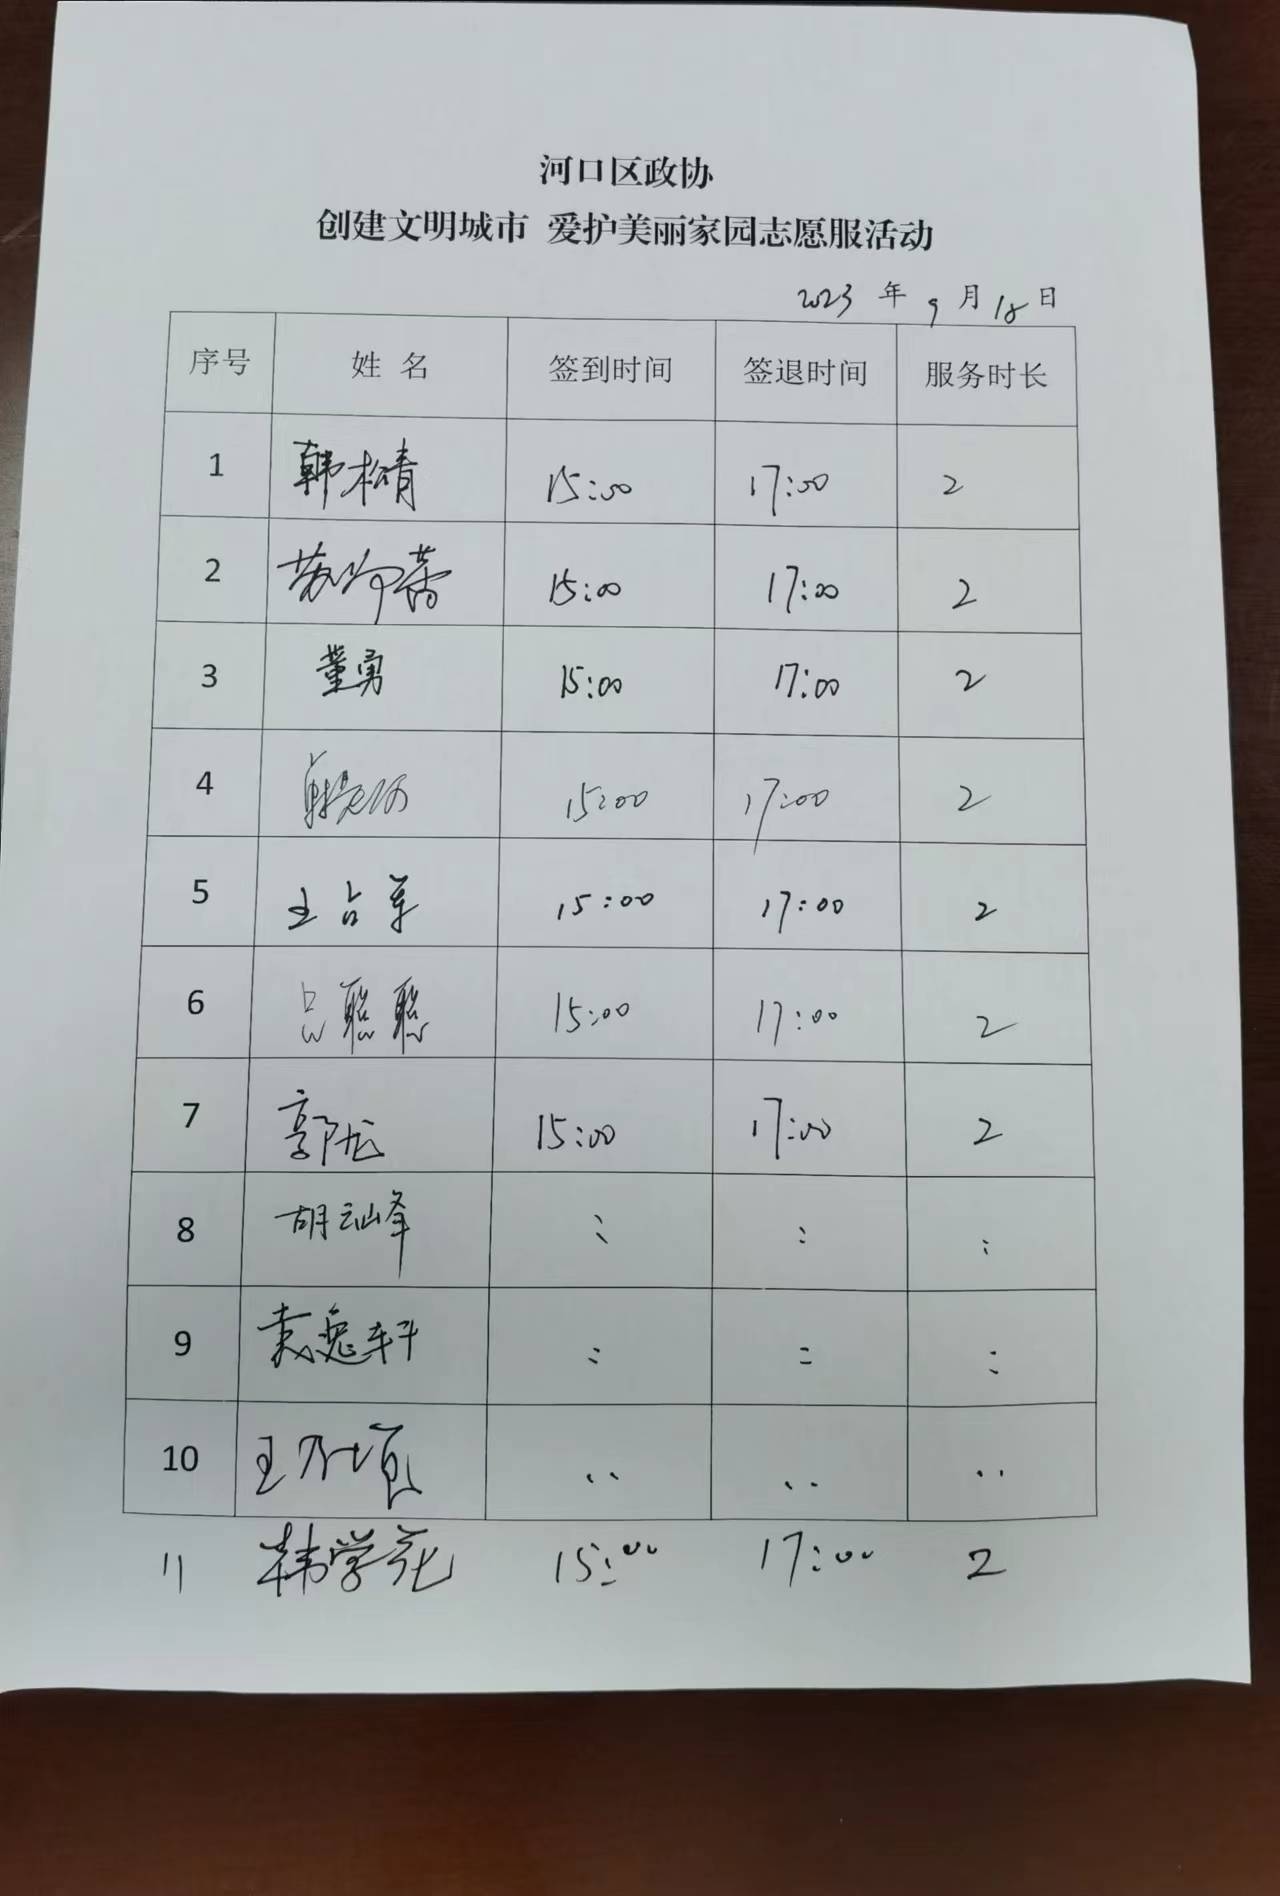 河口区政协
创建文明城市 爱护美丽家园志愿服活动
2023 年 9 月 18 日
序号 姓 名 签到时间 签退时间 服务时长
1 韩松青 15:00 17:00 2
2 苏 15:00 17:00 2
3 董勇 15:00 17:00 2
4 15:00 17:00 2
5 王占军 15:00 17:00 2
6 吕聪聪 15:00 17:00 2
7 郭龙 15:00 17:00 2
8 胡云峰 : : :
9 袁逸轩 : : :
10 王乃 .. .. ..
11 韩学花 15:00 17:00 2